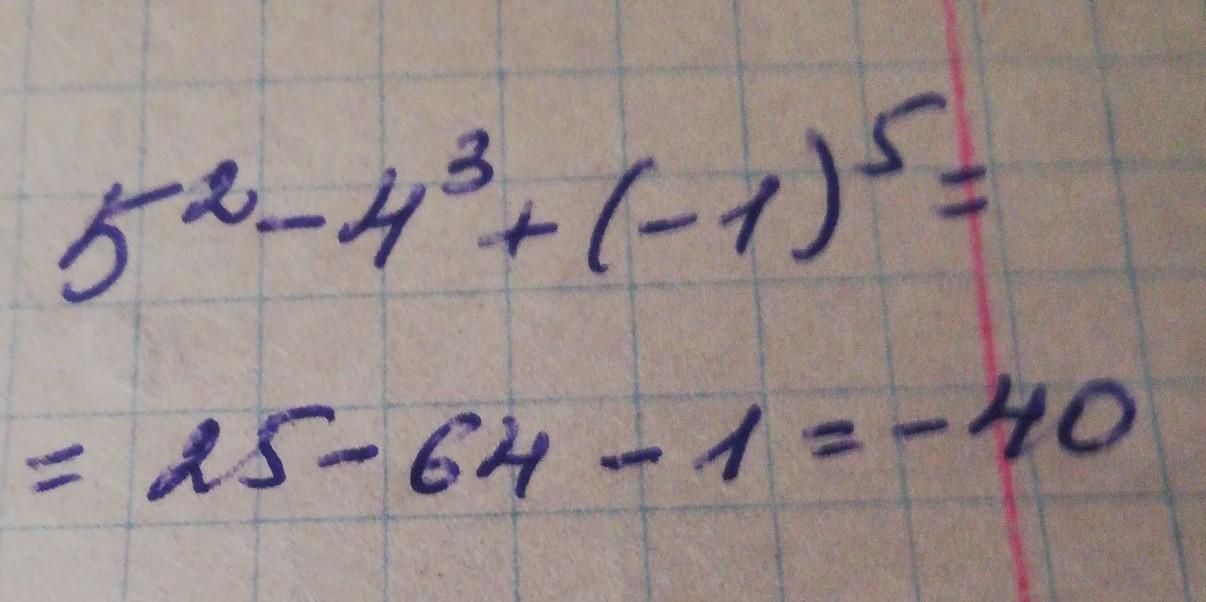 5² - 4³ + (-1)⁵ =
= 25 - 64 - 1 = -40